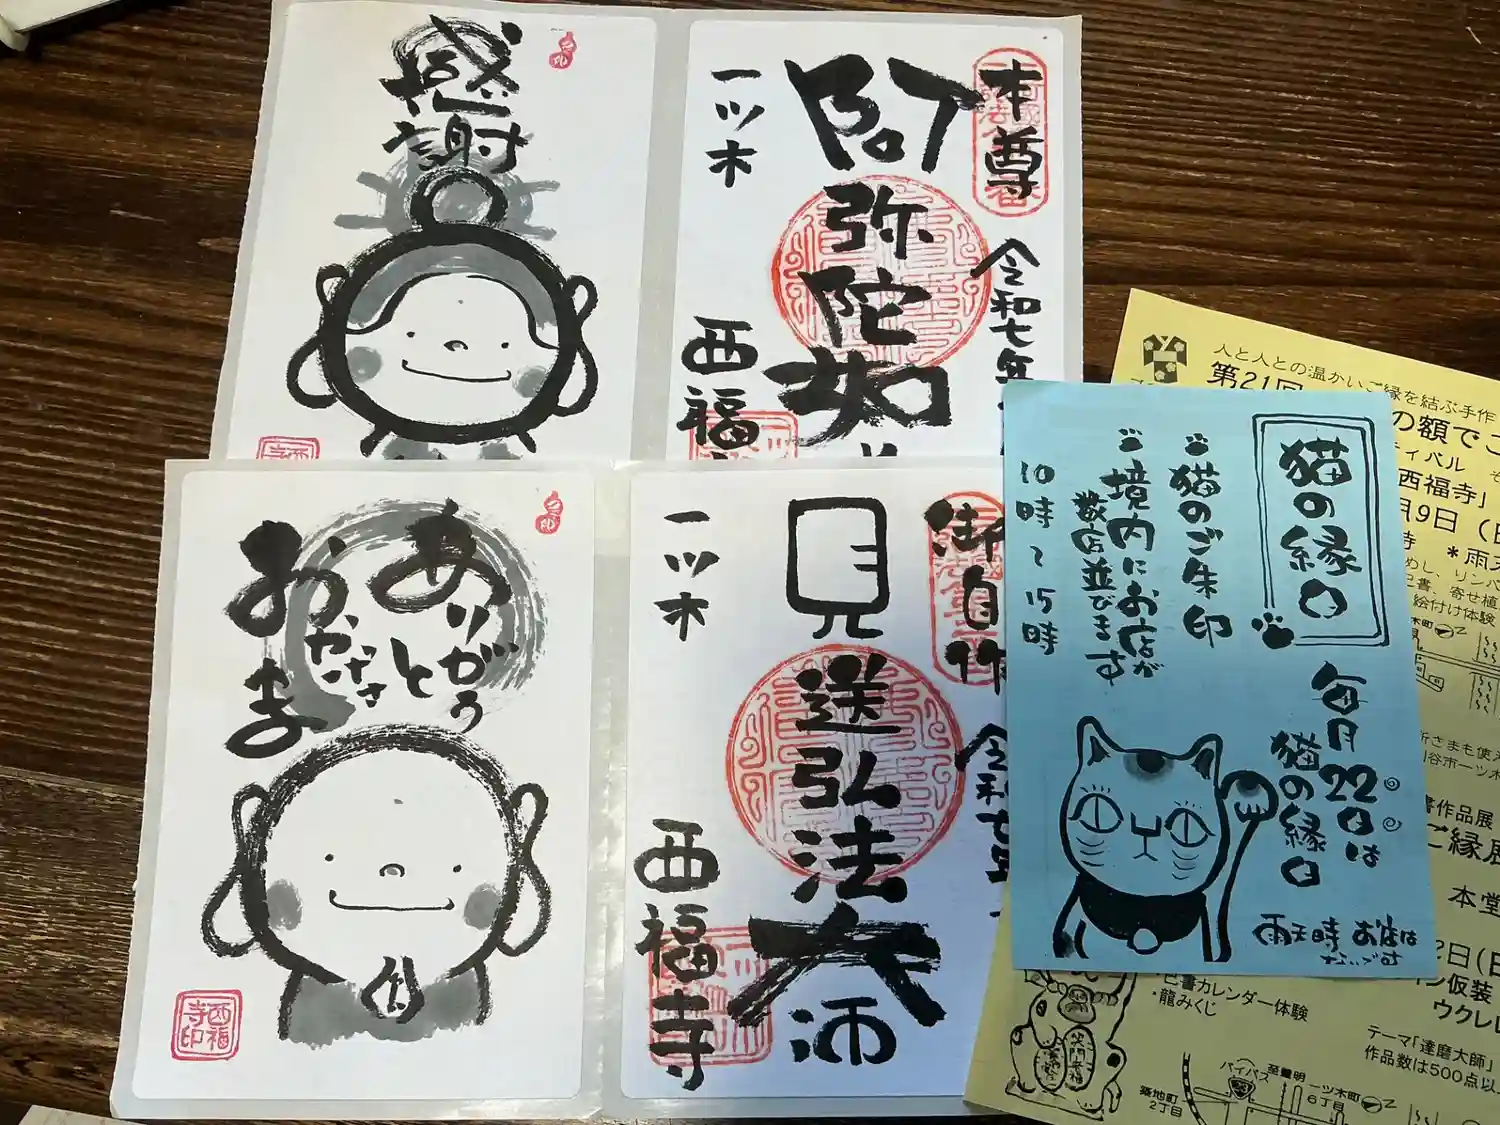 感謝
本尊
阿弥陀如
令和七年
一ツ木
西福
ありがとう
おかささま
西福寺印
御自作
見送弘法大師
令和七年
一ツ木
西福寺
猫の縁日
猫のご朱印
境内にお店が
数店並びます
10時〜15時
毎月22日は
猫の縁日
雨天時 お店は
ないです
人と人との温かいご縁を結ぶ手作
第21回
の額でご
ィバル
西福寺」
月9日(日
時 *雨天
めし、リンパ
己書、寄せ植
絵付け体験
木町
所さまも使え
刈谷市一ツ木
書作品展
ご縁展
本堂
2日(日
ン仮装
ウクレレ
・己書カレンダー体験
・龍みくじ
テーマ「達磨大師」
作品数は500点以
笑門来福
バイパス
至豊明
一ツ木町
6丁目
築地町
2丁目